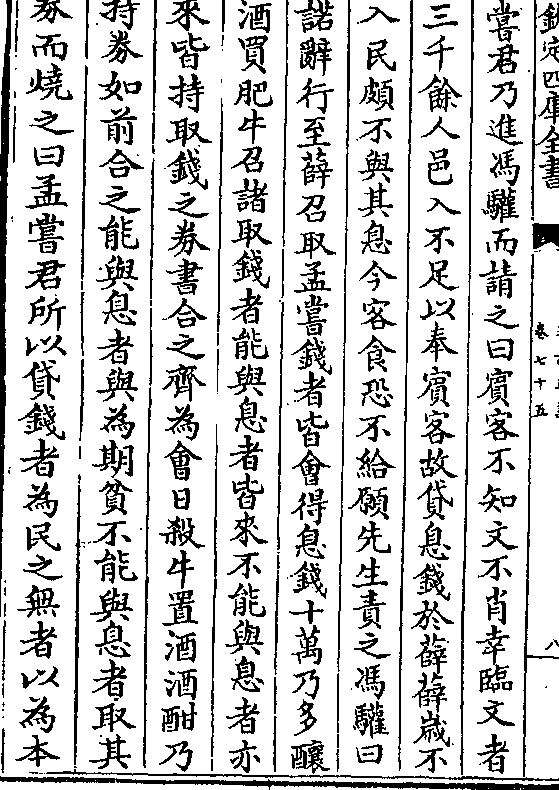 欽定四庫全書
卷七十五
八
嘗君乃進馮驩而請之曰賓客不知文不肖幸臨文者
三千餘人邑入不足以奉賓客故貸息錢於薛薛歲不
入民頗不與其息今客食恐不給願先生責之馮驩曰
諾辭行至薛召取孟嘗錢者皆會得息錢十萬乃多釀
酒買肥牛召諸取錢者能與息者皆來不能與息者亦
來皆持取錢之券書合之齊為會日殺牛置酒酒酣乃
持券如前合之能與息者與為期貧不能與息者取其
券而燒之曰孟嘗君所以貸錢者為民之無者以為本